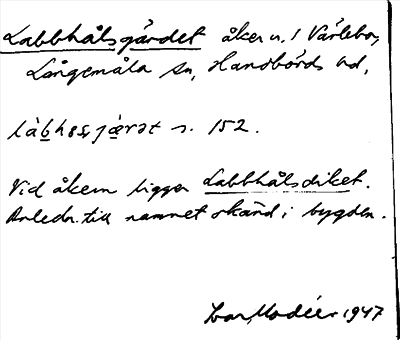 Labbhålsgärdet åker n. 1 Värlebo,
Långemåla sn, Handbörds hd,
làbhɷsjæ̀rət s. 152.
Vid åkern ligger Labbhålsdiket.
Anledn. till namnet okänd i bygden.
Ivar Modéer 1947